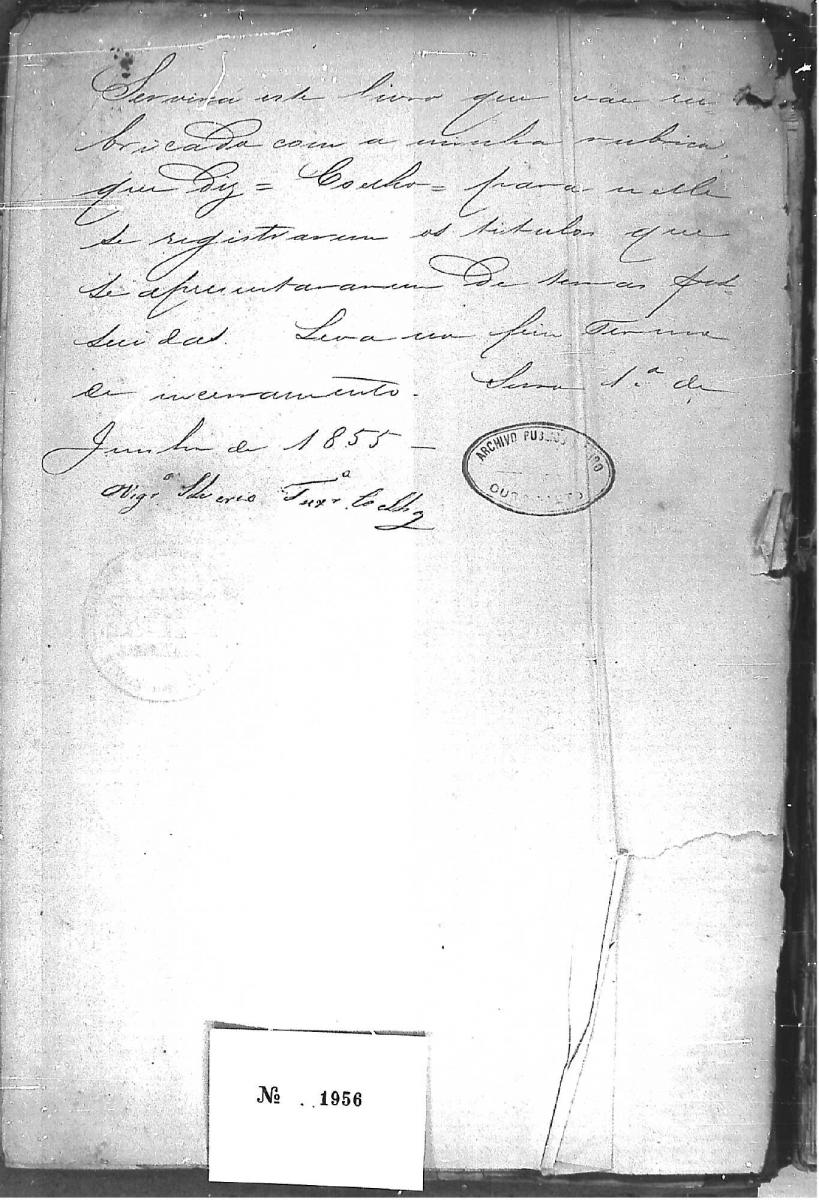 Servirá este livro que vae ru
bricado com a minha rubrica,
que diz = Coelho = para nelle
se registrarem os titulos que
se apresentararem de terras pos
suidas. Leva no fim Termo
de incerramento. Serro 1.º de
Junho de 1855 —
Vigr.º Silverio Teixr.ª Coelho
ARCHIVO PUBLICO
OURO PRETO
Nº 1956